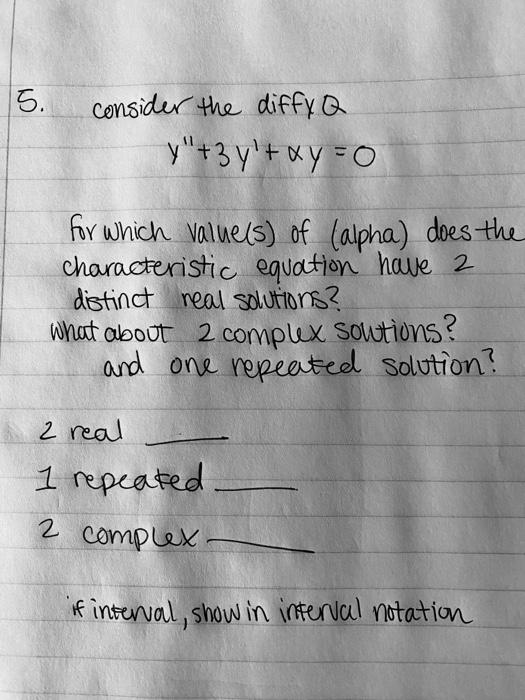 5. consider the diffy Q
y"+3y'+αy=0
for which value(s) of (alpha) does the
characteristic equation have 2
distinct real solutions?
what about 2 complex solutions?
and one repeated solution?
2 real ____
1 repeated ____
2 complex ____
if interval, show in interval notation